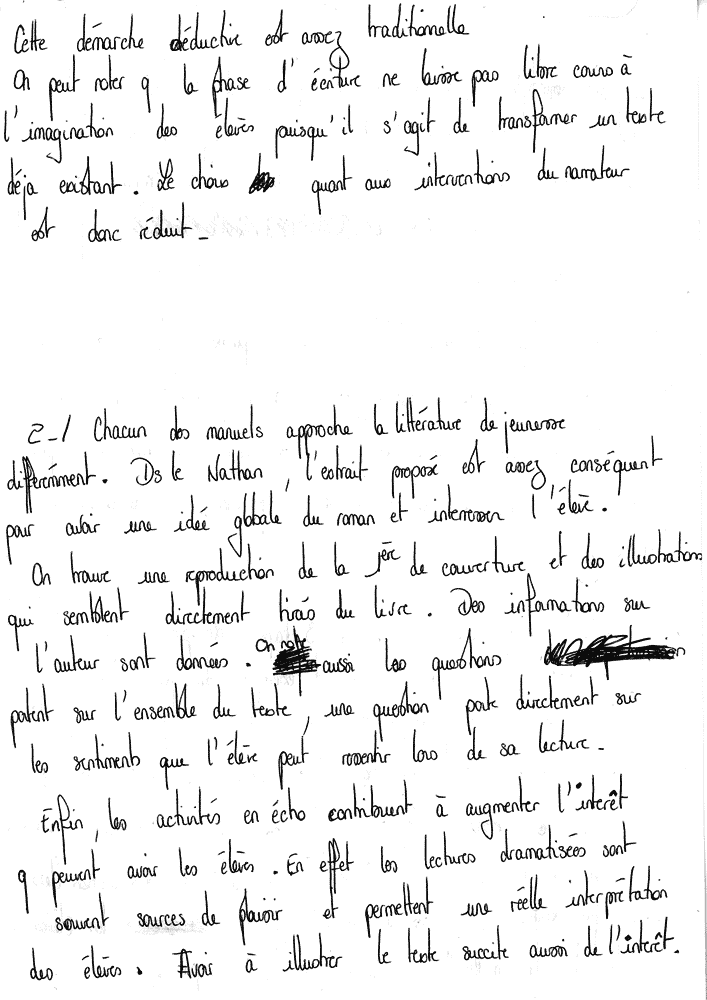 Cette démarche déductive est assez traditionnelle
On peut noter q la phase d'écriture ne laisse pas libre cours à
l'imagination des élèves puisqu'il s'agit de transformer un texte
déja existant. Le choix quant aux interventions du narrateur
est donc réduit_
2_1 Chacun des manuels approche la littérature de jeunesse
différemment. Ds le Nathan, l'extrait proposé est assez conséquent
pour avoir une idée globale du roman et interesser l'élève.
On trouve une reproduction de la 1ère de couverture et des illustrations
qui semblent directement tirés du livre. Des informations sur
l'auteur sont données. On note aussi les questions
portent sur l'ensemble du texte, une question porte directement sur
les sentiments que l'élève peut ressentir lors de sa lecture_
Enfin, les activités en écho contribuent à augmenter l'interêt
q peuvent avoir les élèves. En effet les lectures dramatisées sont
souvent sources de plaisir et permettent une réelle interprétation
des élèves. Avoir à illustrer le texte succite aussi de l'interêt.